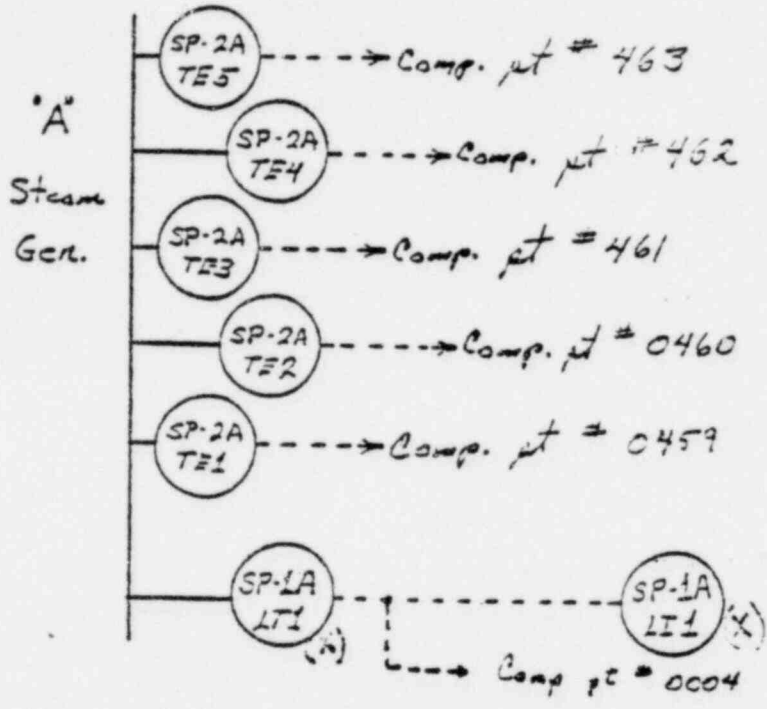 SP-2A
TE5
Comp. pt # 463
"A"
Steam
Gen.
SP-2A
TE4
Comp. pt # 462
SP-2A
TE3
Comp. pt # 461
SP-2A
TE2
Comp. pt # 0460
SP-2A
TE1
Comp. pt # 0459
SP-1A
LT1
SP-1A
LI1
(X)
Comp pt # 0004